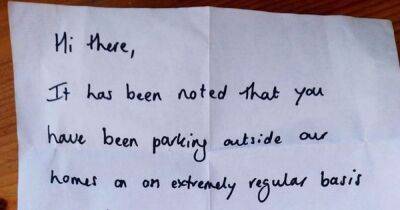 Hi there,
It has been noted that you
have been parking outside our
homes on an extremely regular basis